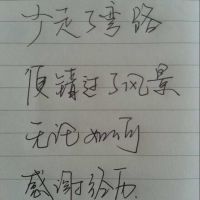 少走了弯路
便错过了风景
无论如何
感谢经历